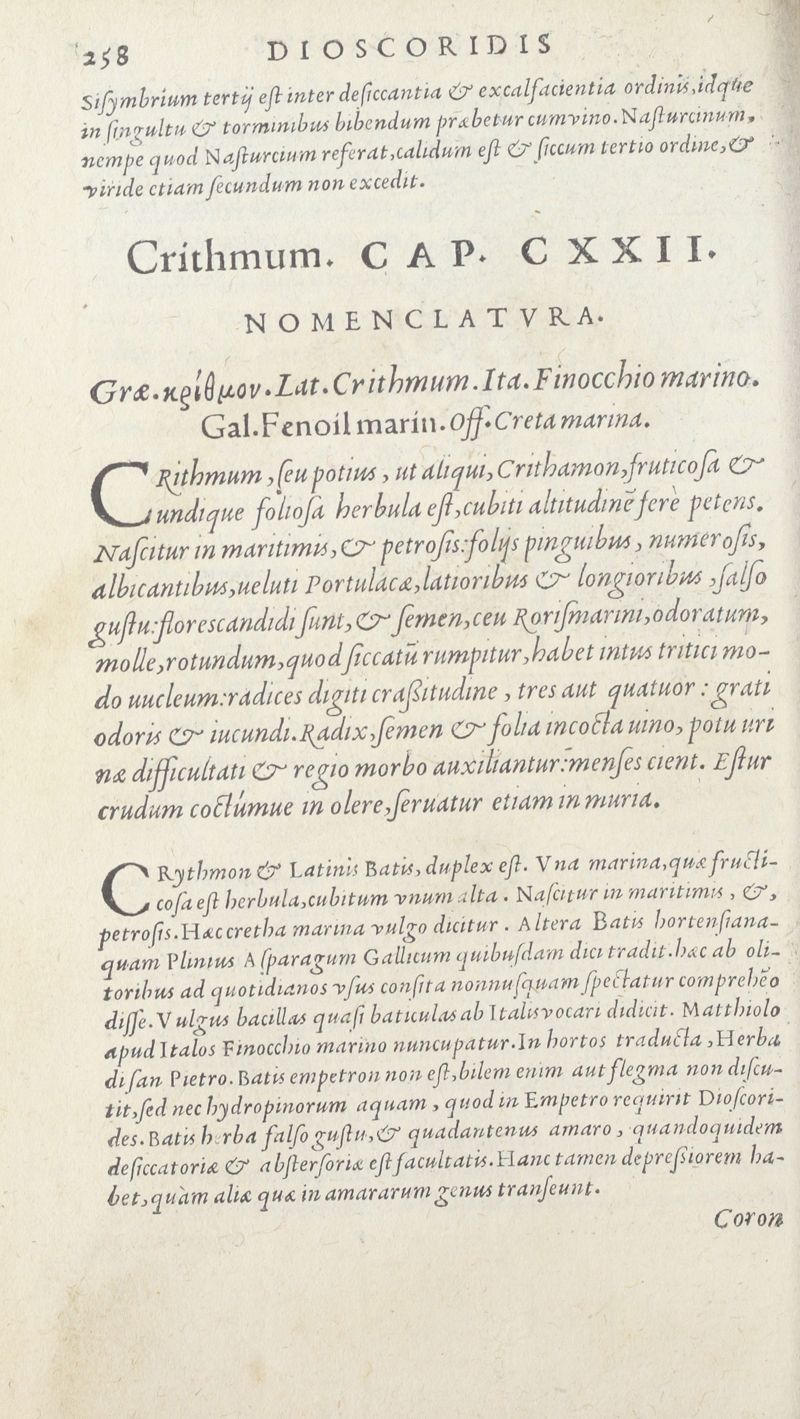 258 DIOSCORIDIS
Sisymbrium tertij est inter desiccantia & excalfacientia ordinis, idque
in singultu & torminibus bibendum præbetur cum vino. Nasturcinum,
nempe quod Nasturcium referat, calidum est & siccum tertio ordine, &
viride etiam secundum non excedit.
Crithmum. CAP. CXXII.
NOMENCLATVRA.
Græ. κρίθμον. Lat. Crithmum. Ita. Finocchio marino.
Gal. Fenoil marin. Off. Creta marina.
CRithmum, seu potius, ut aliqui, Crithamon, fruticosa &
undique foliosa herbula est, cubiti altitudinē ferè petens.
Nascitur in maritimis, & petrosis: folijs pinguibus, numerosis,
albicantibus, ueluti Portulacæ, latioribus & longioribus, salso
gustu: flores candidi sunt, & semen, ceu Rorismarini, odoratum,
molle, rotundum, quod siccatū rumpitur, habet intus tritici mo-
do uucleum: radices digiti crassitudine, tres aut quatuor: grati
odoris & iucundi. Radix, semen & folia incocta uino, potu uri
næ difficultati & regio morbo auxiliantur: menses cient. Estur
crudum coctúmue in olere, seruatur etiam in muria.
CRythmon & Latinis Batis, duplex est. Vna marina, quæ fructi-
cosa est herbula, cubitum vnum alta. Nascitur in maritimis, &,
petrosis. Hæc cretha marina vulgo dicitur. Altera Batis hortensiana-
quam Plinius Asparagum Gallicum quibusdam dici tradit. hæc ab oli-
toribus ad quotidianos vsus consita nonnusquam spectatur comprehēo
disse. Vulgus bacillas quasi baticulas ab Italis vocari didicit. Matthiolo
apud Italos Finocchio marino nuncupatur. In hortos traducta, Herba
di san Pietro. Batis empetron non est, bilem enim aut flegma non discu-
tit, sed nec hydropinorum aquam, quod in Empetro requirit Dioscori-
des. Batis herba salso gustu, & quadantenus amaro, quandoquidem
desiccatoriæ & abstersoriæ est facultatis. Hanc tamen depressiorem ha-
bet, quàm aliæ quæ in amararum genus transeunt.
Coron